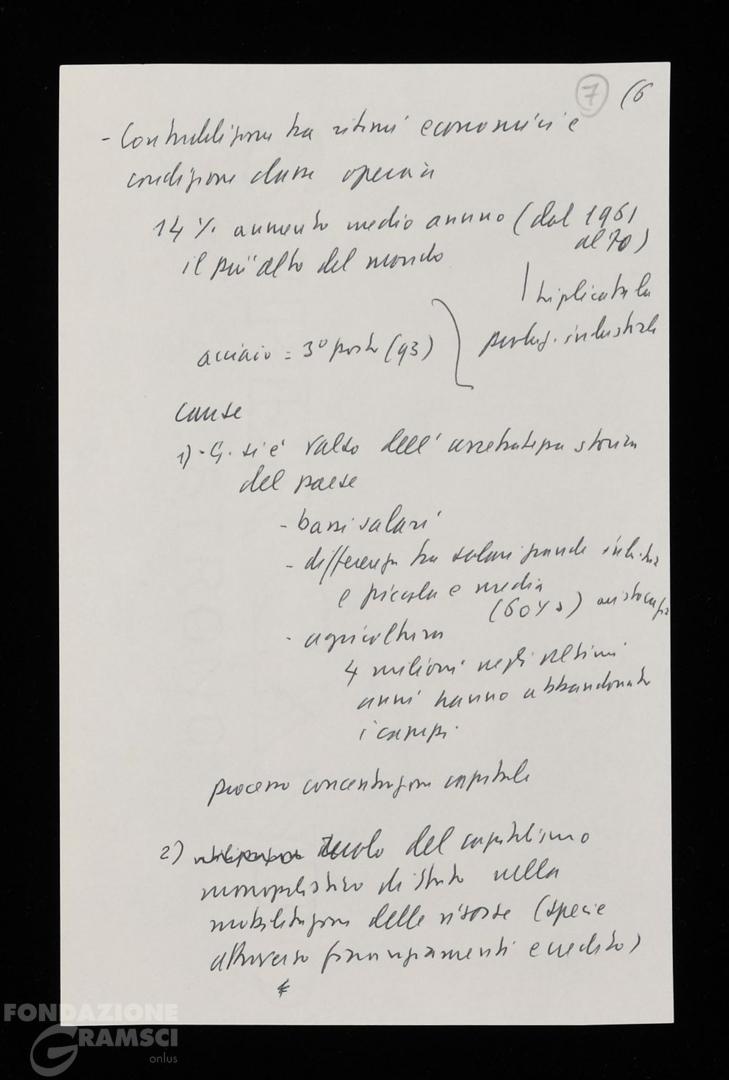 7 (6
- Contraddizione tra ritmi economici e
condizione classe operaia
14 % aumento medio annuo (dal 1961
al 70)
il più alto del mondo
triplicata la
produz. industriale
acciaio = 3° posto (93)
cause
1) - G. si è valso dell'arretratezza storica
del paese
- bassi salari
- differenza tra salari grande industria
e piccola e media
(60%)
- agricoltura
4 milioni negli ultimi
anni hanno abbandonato
i campi.
processo concentrazione capitale
2) ruolo del capitalismo
monopolistico di Stato nella
mobilitazione delle risorse (specie
attraverso finanziamenti e credito)
FONDAZIONE
GRAMSCI
onlus